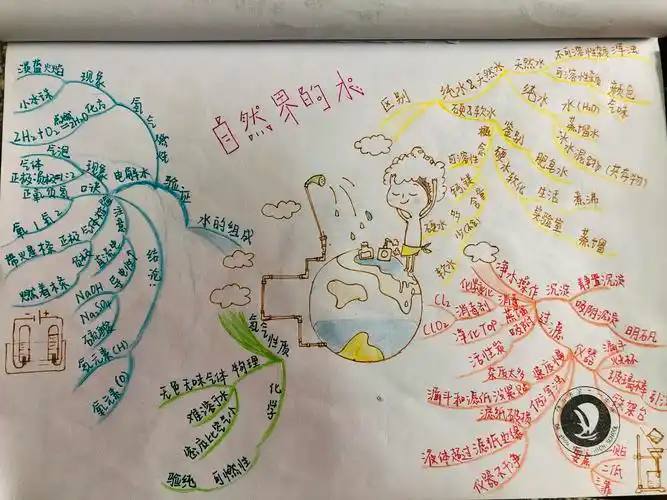 自然界的水
水的组成
验证
氢气燃烧
现象
淡蓝火焰
小水珠
化方
2H₂+O₂点燃=2H₂O
电解水
现象
气泡
气体
正极:负极=1:2
口诀
正氧负氢
氧1氢2
气体检验
正极
带火星木条
负极
燃着木条
注意
NaOH
Na₂SO₄
硫酸
结论:
氢元素(H)
氧元素(O)
氢气性质
物理
无色无味气体
难溶于水
密度比空气小
化学
可燃性
验纯
区别
纯水&天然水
天然水
不可溶性杂质
浑浊
可溶性杂质
颜色
气味
纯水
水(H₂O)
蒸馏水
冰水混合物
硬&软水
概念
可溶性
钙镁
含量
硬水
多
软水
鉴别
肥皂水
硬水软化
生活
煮沸
实验室
蒸馏
净水操作
沉淀
静置沉淀
吸附沉淀
明矾
过滤
仪器
漏斗
烧杯
玻璃棒
引流
铁架台
一贴
二低
杂质太多
速度慢
漏斗和滤纸没紧贴
滤纸破损
液体超过滤纸边缘
仪器不干净
吸附
活性炭
蒸馏
净化Top
消毒
消毒剂
Cl₂
ClO₂